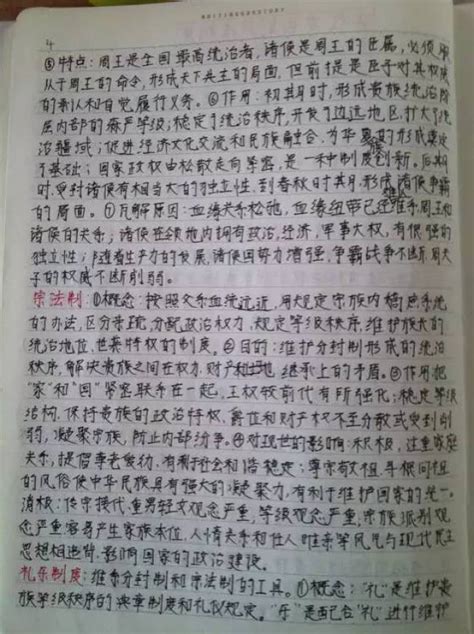 4
⑤特点：周王是全国最高统治者，诸侯是周王的臣属，必须服
从于周王的命令，形成天下共主的局面，但前提是臣子对其权威
的承认和自觉履行义务。⑥作用：初期时，形成贵族统治阶
层内部的森严等级；稳定了统治秩序，开发了边远地区，扩大了统
治疆域；促进经济文化交流和民族融合，为华夏族的形成奠定
了基础；国家政权由松散走向紧密，是一种制度创新。后期
时，受封诸侯有相当大的独立性，到春秋时其月形成诸侯争霸
的局面。⑦瓦解原因：血缘关系松弛，血缘纽带已经难系周王和
诸侯的关系；诸侯在领地内拥有政治，经济，军事大权，有很强的
独立性；随着生产力的发展，诸侯国势力增强，争霸战争不断，周天
子的权威不断削弱。
宗法制：①概念：按照父系血统远近，用以规定宗族内嫡庶系统
的办法，区分亲疏，分配政治权力，规定等级秩序，维护族长的
统治地位，世袭特权的制度。②目的：维护分封制形成的统治
秩序，解决贵族之间在权力，财产和土地继承上的矛盾。③作用把
“家”和“国”紧密联系在一起，王权较前代有所强化；稳定等级
结构，保持贵族的政治特权，爵位和财产权不至分散或受到削
弱，凝聚宗族，防止内部纷争。④对现世的影响：积极，注重家庭
关系，提倡孝老爱幼，有利于社会和谐稳定；尊宗敬祖，寻根问祖
的风俗使中华民族具有强大的凝聚力，有利于维护国家的统一。
消极：传宗接代，重男轻女观念严重，等级观念严重，宗族派别观
念严重容易产生家族本位，人情关系和任人唯亲等风气与现代民主
思想相违背，影响国家的政治建设。
礼乐制度：维系分封制和宗法制的工具。①概念：“礼”是维护贵
族等级秩序的典章制度和礼仪规定。“乐”是配合“礼”进行维护